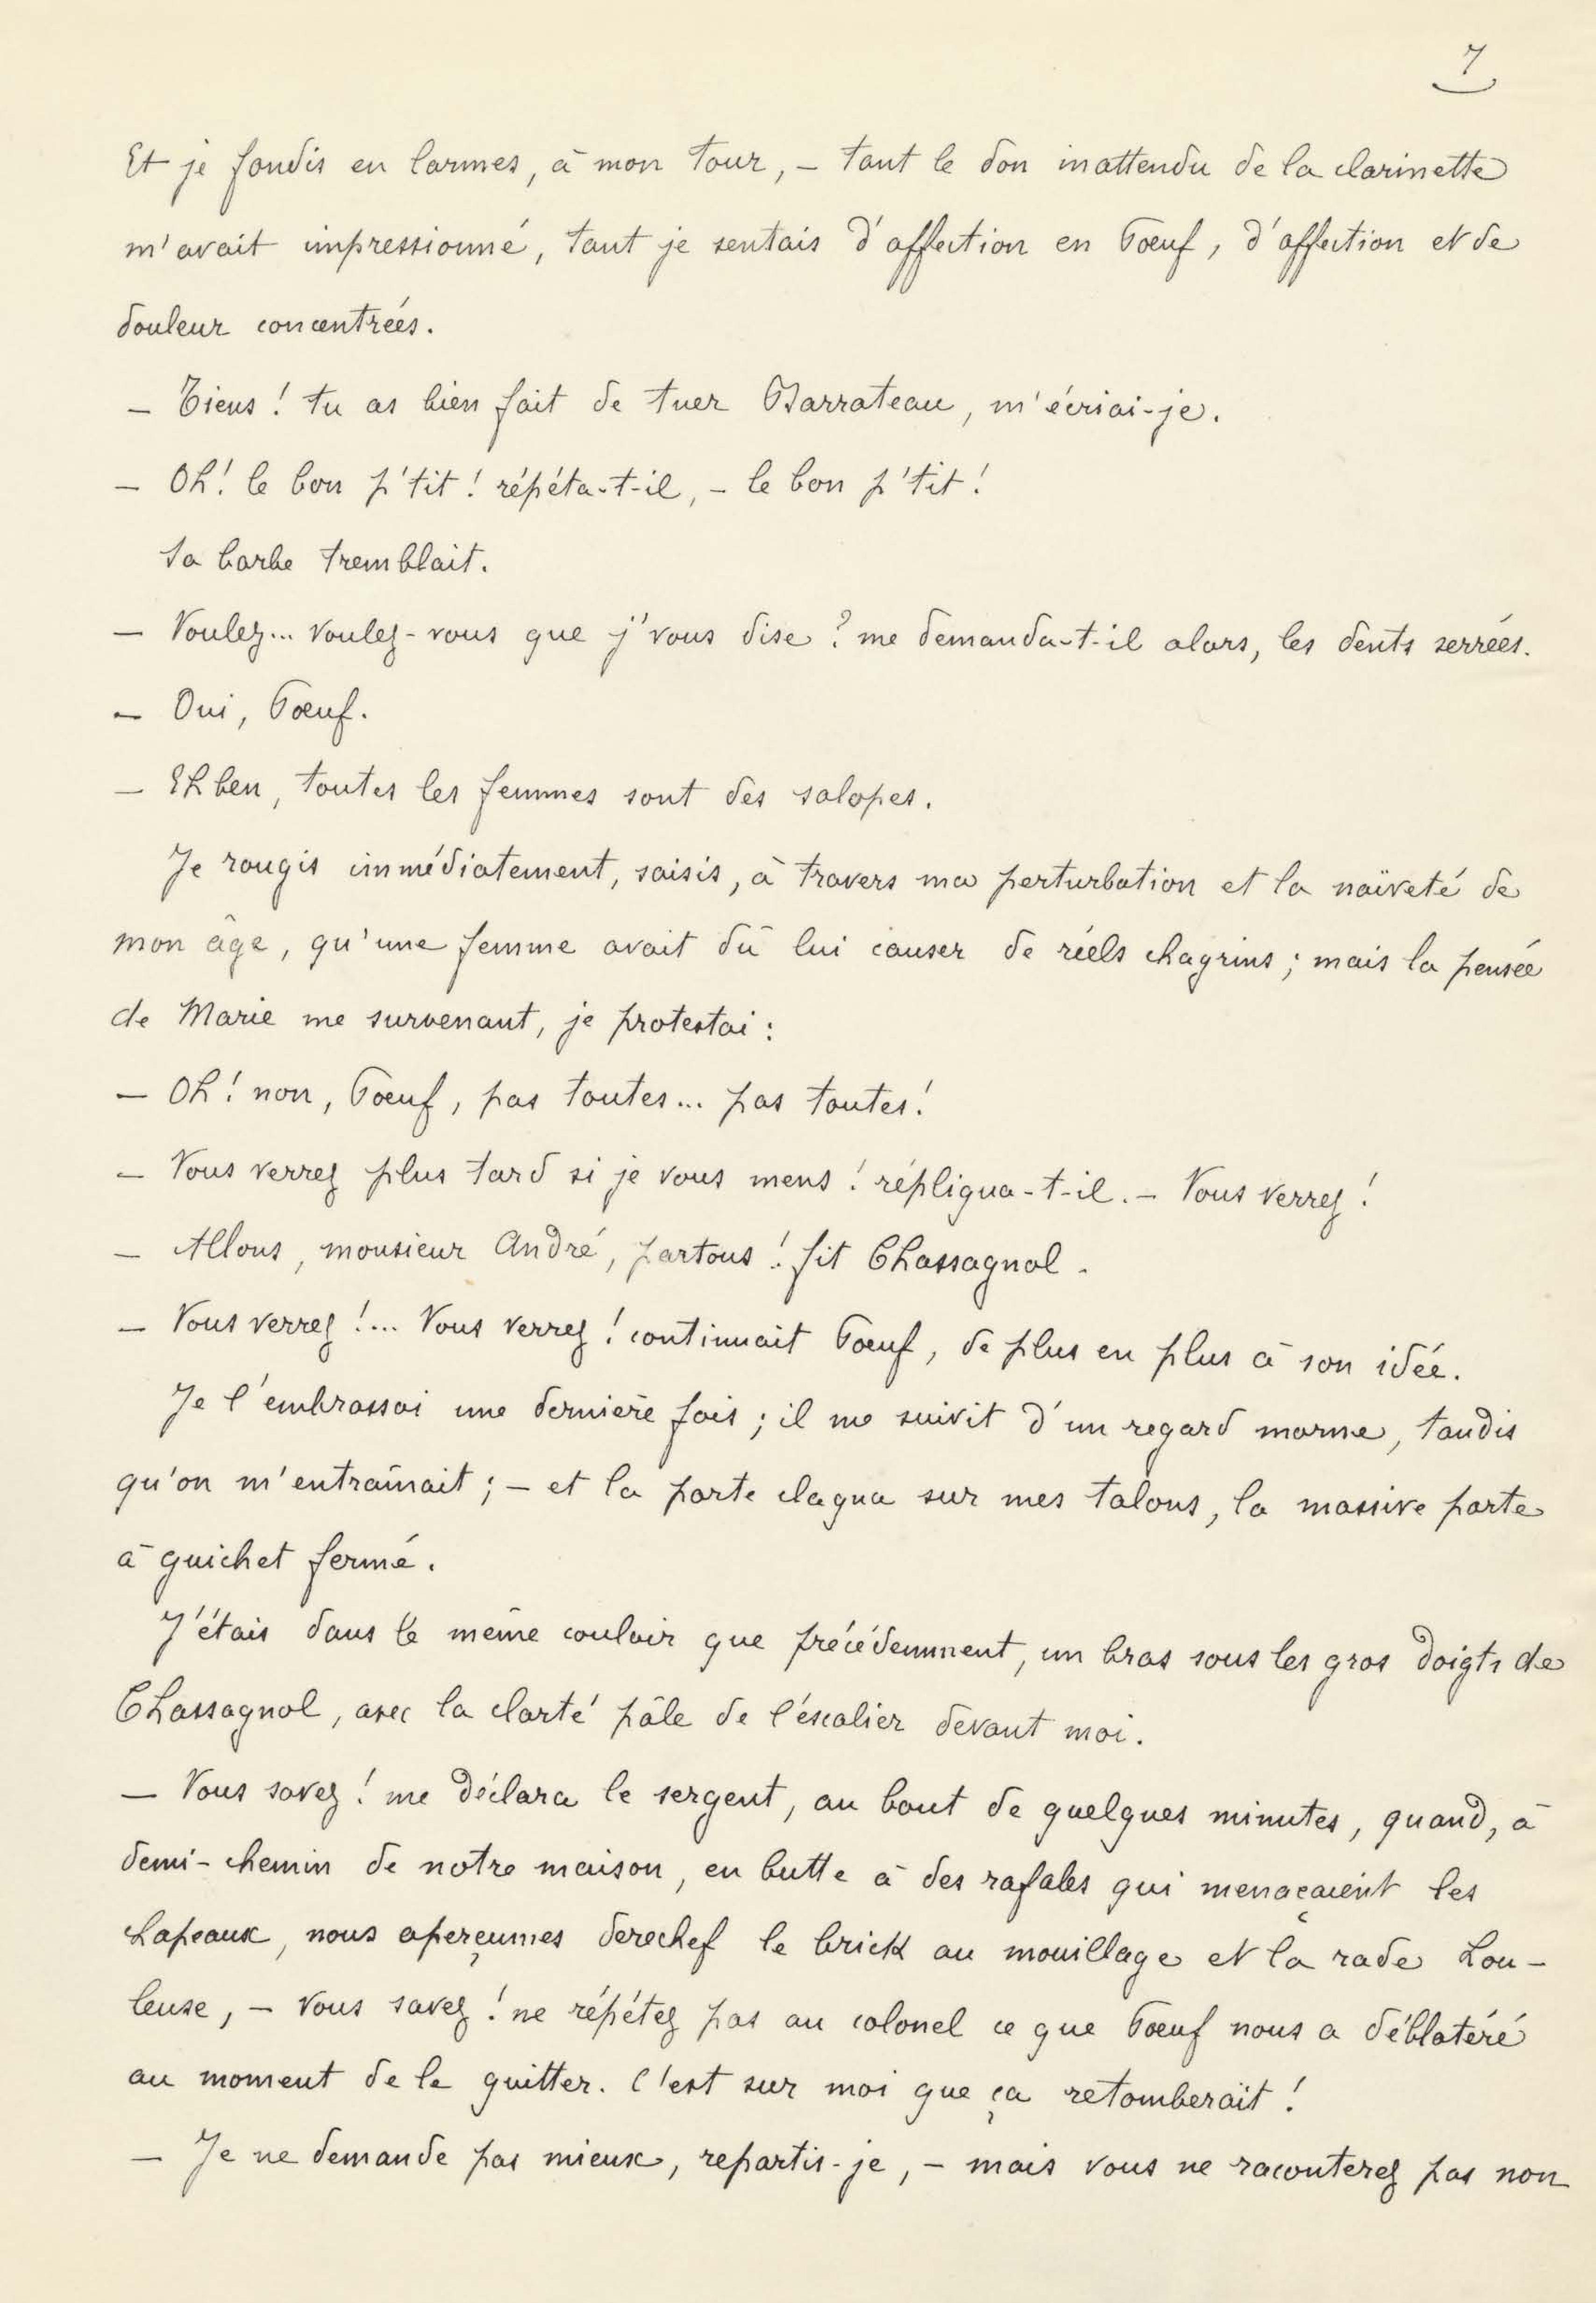 7
Et je fondis en larmes, à mon tour, – tant le don inattendu de la clarinette
m'avait impressionné, tant je sentais d'affection en Bœuf, d'affection et de
douleur concentrées.
– Tiens ! tu as bien fait de tuer Barrateau, m'écriai-je.
– Oh ! le bon p'tit ! répéta-t-il, – le bon p'tit !
Sa barbe tremblait.
– Voulez... voulez-vous que j'vous dise ? me demanda-t-il alors, les dents serrées.
– Oui, Bœuf.
– Eh ben, toutes les femmes sont des salopes.
Je rougis immédiatement, saisis, à travers ma perturbation et la naïveté de
mon âge, qu'une femme avait dû lui causer de réels chagrins ; mais la pensée
de Marie me survenant, je protestai :
– Oh ! non, Bœuf, pas toutes... pas toutes !
– Vous verrez plus tard si je vous mens ! répliqua-t-il. – Vous verrez !
– Allons, monsieur André, partons ! fit Chassagnol.
– Vous verrez !... Vous verrez ! continuait Bœuf, de plus en plus à son idée.
Je l'embrassai une dernière fois ; il me suivit d'un regard morne, tandis
qu'on m'entraînait ; – et la porte claqua sur mes talons, la massive porte
à guichet fermé.
J'étais dans le même couloir que précédemment, un bras sous les gros doigts de
Chassagnol, avec la clarté pâle de l'escalier devant moi.
– Vous savez ! me déclara le sergent, au bout de quelques minutes, quand, à
demi-chemin de notre maison, en butte à des rafales qui menaçaient les
chapeaux, nous aperçumes derechef le brick au mouillage et la rade hou-
leuse, – vous savez ! ne répétez pas au colonel ce que Bœuf nous a déblatéré
au moment de le quitter. C'est sur moi que ça retomberait !
– Je ne demande pas mieux, repartis-je, – mais vous ne raconterez pas non